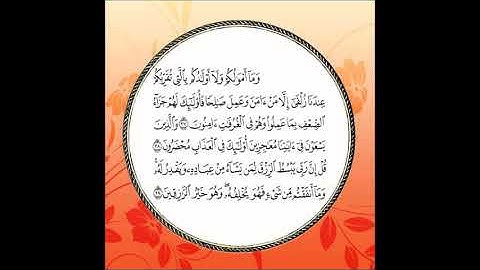 وَمَآ أَمۡوَٰلُكُمۡ وَلَآ أَوۡلَٰدُكُم بِٱلَّتِي تُقَرِّبُكُمۡ
عِندَنَا زُلۡفَىٰٓ إِلَّا مَنۡ ءَامَنَ وَعَمِلَ صَٰلِحٗا فَأُوْلَٰٓئِكَ لَهُمۡ جَزَآءُ
ٱلضِّعۡفِ بِمَا عَمِلُواْ وَهُمۡ فِي ٱلۡغُرُفَٰتِ ءَامِنُونَ ٣٧ وَٱلَّذِينَ
يَسۡعَوۡنَ فِيٓ ءَايَٰتِنَا مُعَٰجِزِينَ أُوْلَٰٓئِكَ فِي ٱلۡعَذَابِ مُحۡضَرُونَ ٣٨
قُلۡ إِنَّ رَبِّي يَبۡسُطُ ٱلرِّزۡقَ لِمَن يَشَآءُ مِنۡ عِبَادِهِۦ وَيَقۡدِرُ لَهُۥۚ
وَمَآ أَنفَقۡتُم مِّن شَيۡءٖ فَهُوَ يُخۡلِفُهُۥۖ وَهُوَ خَيۡرُ ٱلرَّٰزِقِينَ ٣٩